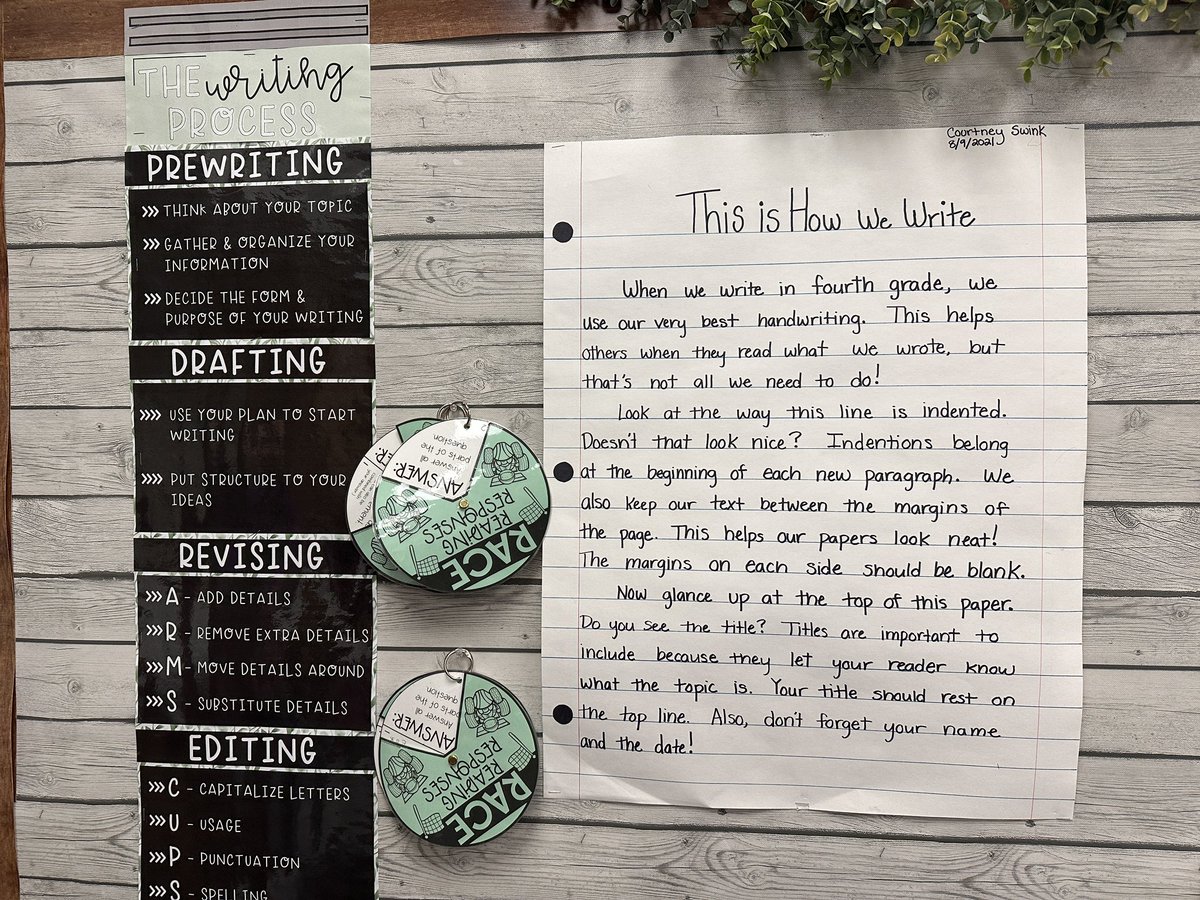 THE writing
PROCESS
PREWRITING
>>> THINK ABOUT YOUR TOPIC
>>> GATHER & ORGANIZE YOUR
INFORMATION
>>> DECIDE THE FORM &
PURPOSE OF YOUR WRITING
DRAFTING
>>> USE YOUR PLAN TO START
WRITING
>>> PUT STRUCTURE TO YOUR
IDEAS
REVISING
>>> A - ADD DETAILS
>>> R - REMOVE EXTRA DETAILS
>>> M - MOVE DETAILS AROUND
>>> S - SUBSTITUTE DETAILS
EDITING
>>> C - CAPITALIZE LETTERS
>>> U - USAGE
>>> P - PUNCTUATION
>>> S - SPELLING
RACE
READING
RESPONSES
ANSWER:
Answer all
parts of the
question
RACE
READING
RESPONSES
ANSWER:
Answer all
parts of the
question
Courtney Swink
8/9/2021
This is How We Write
When we write in fourth grade, we
use our very best handwriting. This helps
others when they read what we wrote, but
that's not all we need to do!
Look at the way this line is indented.
Doesn't that look nice? Indentions belong
at the beginning of each new paragraph. We
also keep our text between the margins of
the page. This helps our papers look neat!
The margins on each side should be blank.
Now glance up at the top of this paper.
Do you see the title? Titles are important to
include because they let your reader know
what the topic is. Your title should rest on
the top line. Also, don't forget your name
and the date!